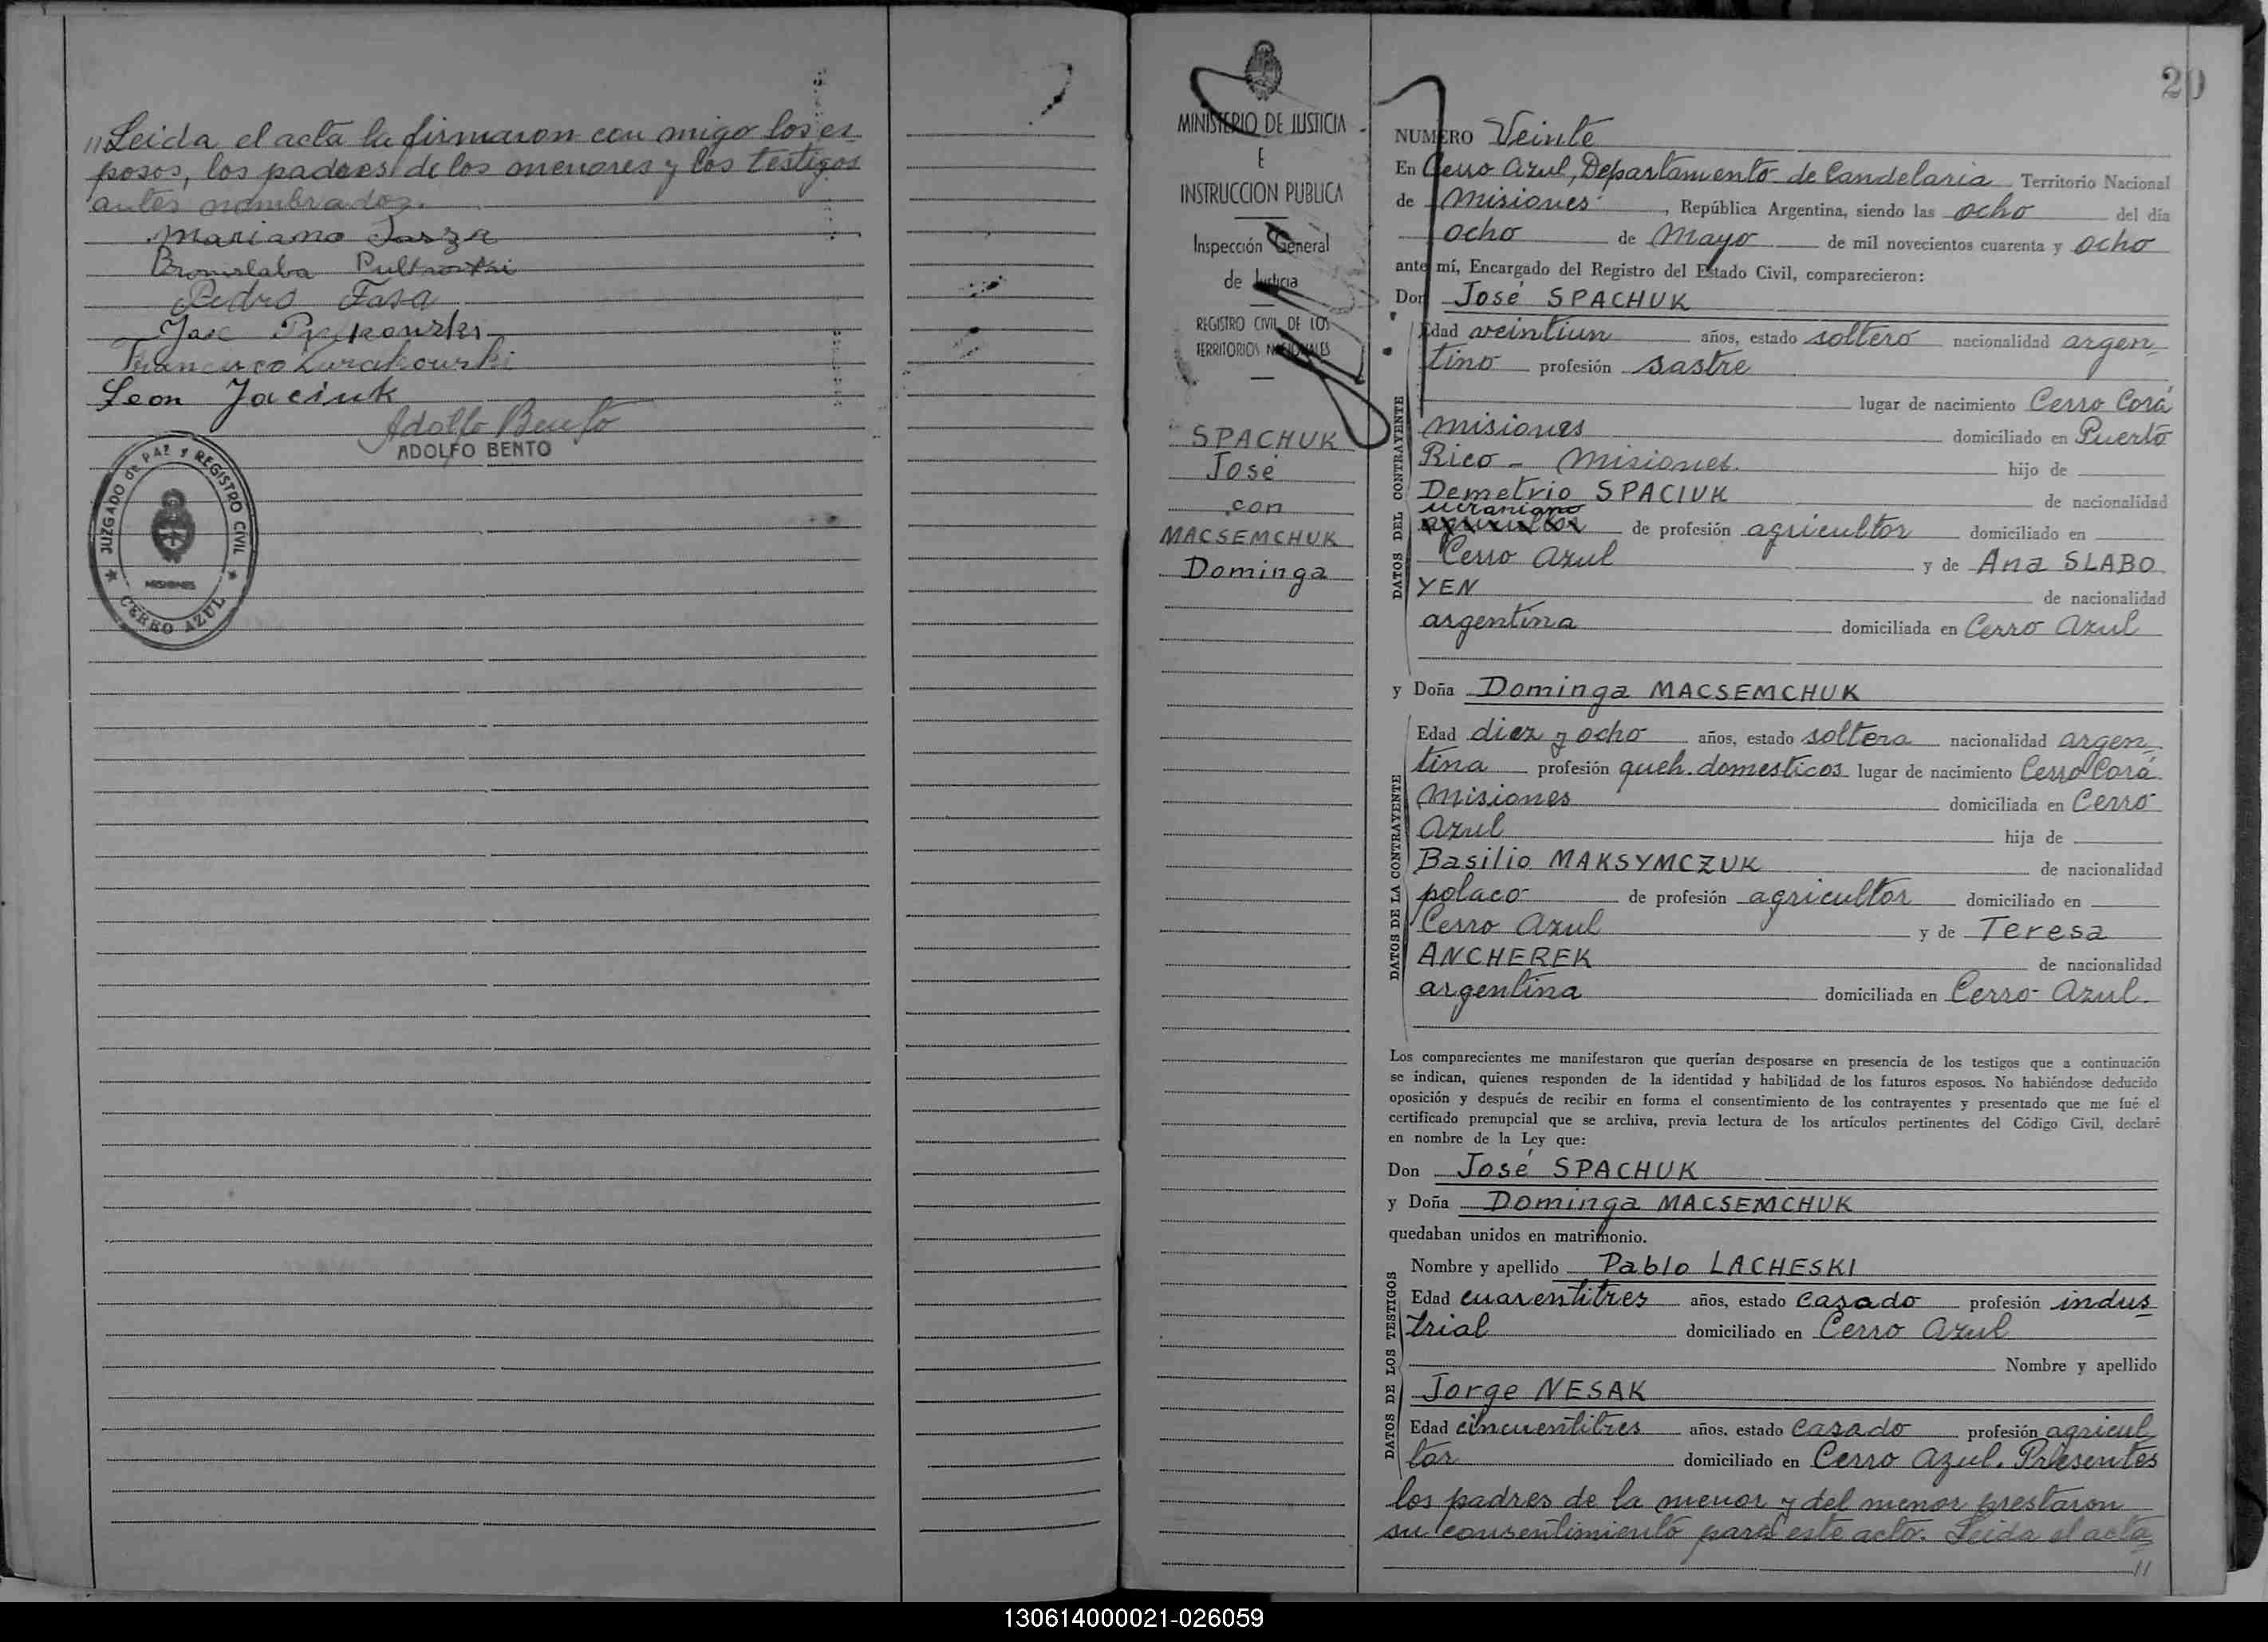 "Leida el acta la firmaron con migo los es_
posos, los padres de los menores y los testigos
antes nombrados.
Mariano Jasza
Pedro
Francisco Zurakowski
Leon Jaciuk
Adolfo Bento
ADOLFO BENTO
JUZGADO de PAZ Y REGISTRO CIVIL
MISIONES
CERRO AZUL
MINISTERIO DE JUSTICIA
E
INSTRUCCION PUBLICA
Inspección General
de Justicia
REGISTRO CIVIL DE LOS
TERRITORIOS NACIONALES
SPACHUK
José
con
MACSEMCHUK
Dominga
20
NUMERO Veinte
En Cerro Azul, Departamento de Candelaria Territorio Nacional
de Misiones, República Argentina, siendo las ocho del día
ocho de Mayo de mil novecientos cuarenta y ocho
ante mí, Encargado del Registro del Estado Civil, comparecieron:
Don José SPACHUK
DATOS DEL CONTRAYENTE
Edad veintiun años, estado soltero nacionalidad argen_
tino profesión sastre
lugar de nacimiento Cerro Corá
Misiones domiciliado en Puerto
Rico - Misiones. hijo de
Demetrio SPACIUK de nacionalidad
ucraniano
agricultor de profesión agricultor domiciliado en
Cerro Azul y de Ana SLABO
YEN de nacionalidad
argentina domiciliada en Cerro Azul
y Doña Dominga MACSEMCHUK
DATOS DE LA CONTRAYENTE
Edad diez y ocho años, estado soltera nacionalidad argen_
tina profesión queh. domesticos lugar de nacimiento Cerro Corá
Misiones domiciliada en Cerro
Azul hija de
Basilio MAKSYMCZUK de nacionalidad
polaco de profesión agricultor domiciliado en
Cerro Azul y de Teresa
ANCHEREK de nacionalidad
argentina domiciliada en Cerro Azul.
Los comparecientes me manifestaron que querían desposarse en presencia de los testigos que a continuación
se indican, quienes responden de la identidad y habilidad de los futuros esposos. No habiéndose deducido
oposición y después de recibir en forma el consentimiento de los contrayentes y presentado que me fué el
certificado prenupcial que se archiva, previa lectura de los artículos pertinentes del Código Civil, declaré
en nombre de la Ley que:
Don José SPACHUK
y Doña Dominga MACSEMCHUK
quedaban unidos en matrimonio.
DATOS DE LOS TESTIGOS
Nombre y apellido Pablo LACHESKI
Edad cuarentitres años, estado casado profesión indus_
trial domiciliado en Cerro Azul
Nombre y apellido
Jorge NESAK
Edad cincuentitres años, estado casado profesión agricul_
tor domiciliado en Cerro Azul. Presentes
los padres de la menor y del menor prestaron
su consentimiento para este acto. Leida el acta
"
130614000021-026059